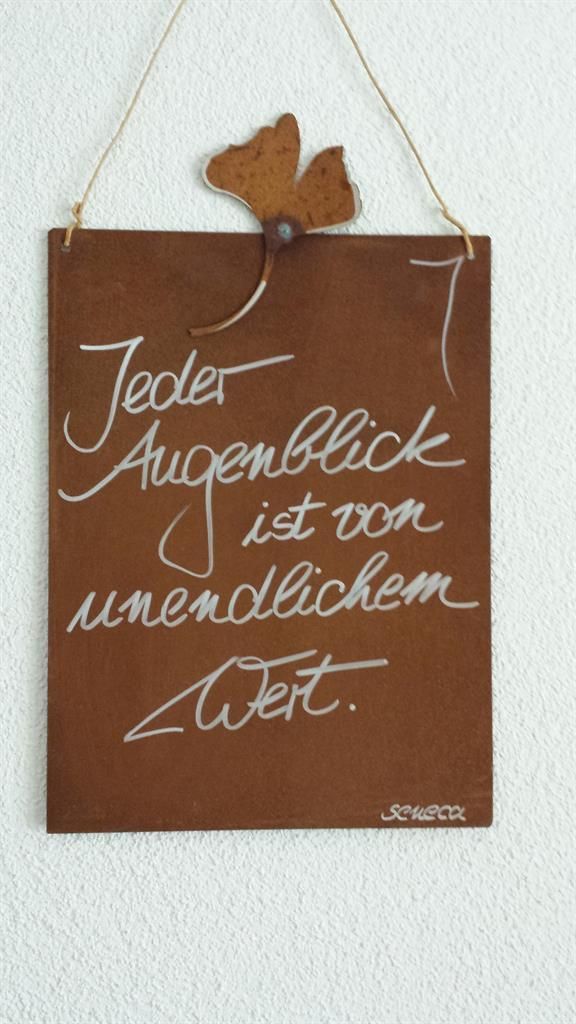 Jeder
Augenblick
ist von
unendlichem
Wert.
Seneca